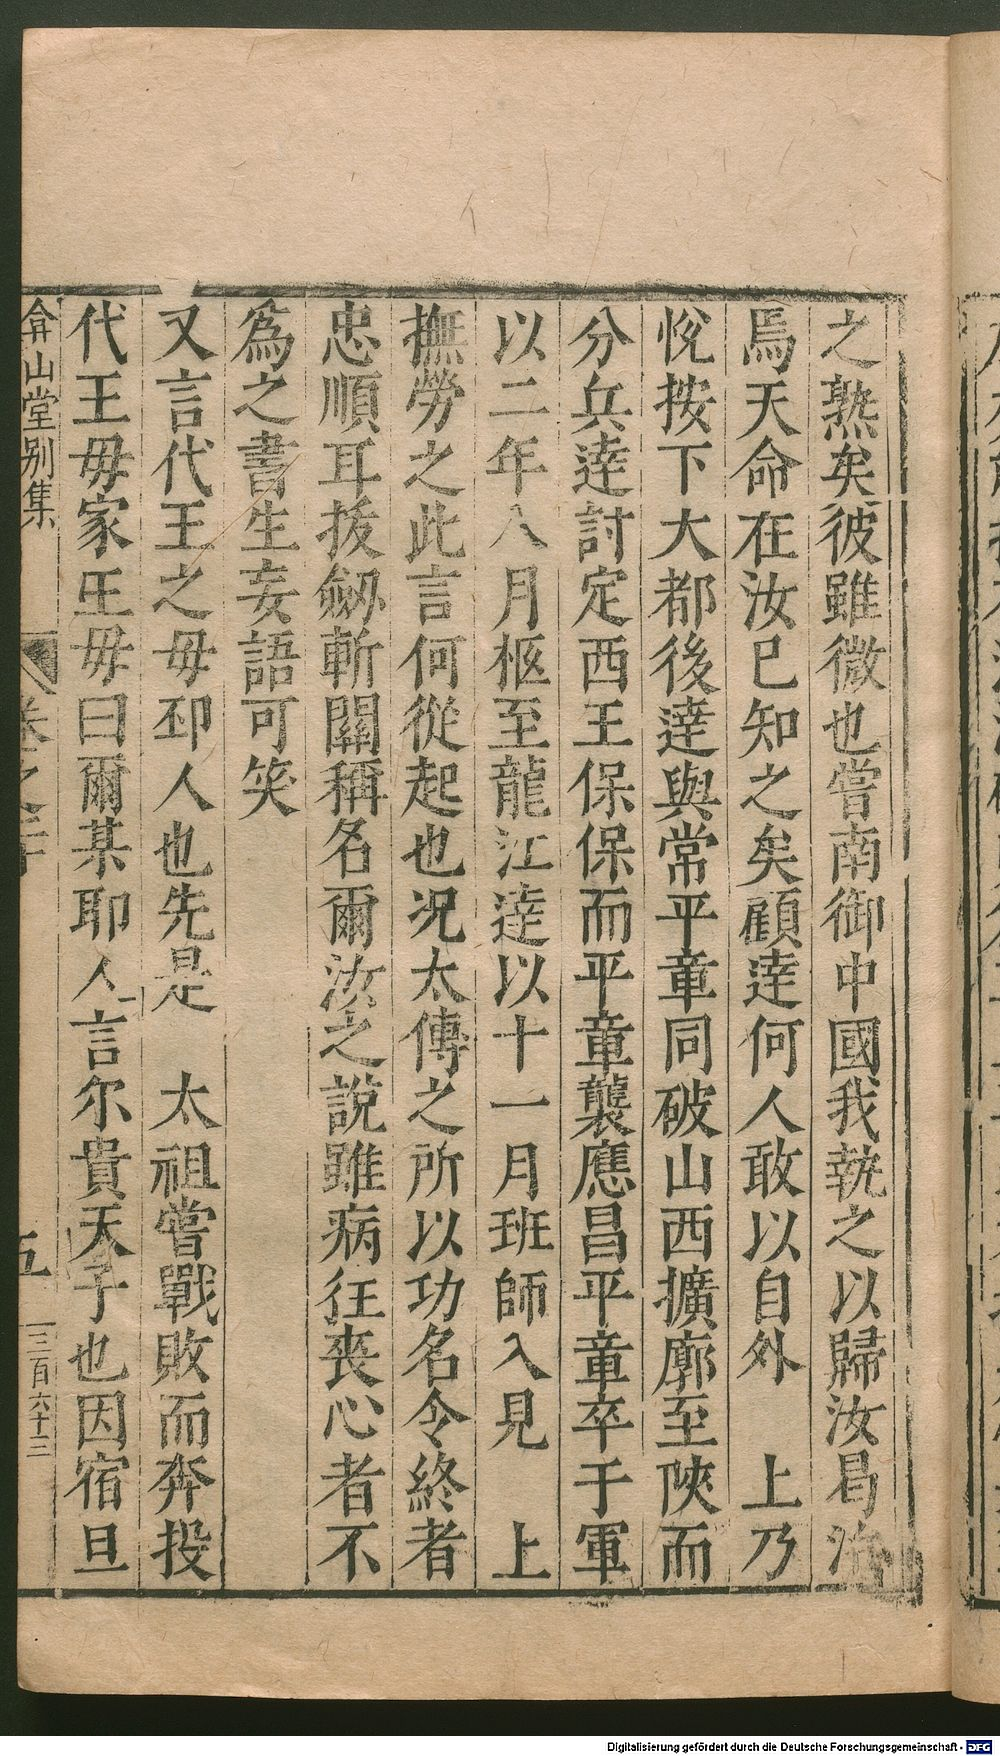 之熟矣彼雖微也嘗南御中國我執之以歸汝曷治
焉天命在汝已知之矣顧逹何人敢以自外　上乃
悅按下大都後逹與常平章同破山西擴廓至陜而
分兵逹討定西王保保而平章襲應昌平章卒于軍
以二年八月柩至龍江逹以十一月班師入見　上
撫勞之此言何從起也况太傳之所以功名令終者
忠順耳拔劔斬關稱名爾汝之說雖病狂喪心者不
爲之書生妄語可笑
又言代王之毋邳人也先是　太祖嘗戰敗而奔投
代王毋家王毋曰爾某耶人言尔貴天子也因宿旦
弇山堂别集　卷之二十　五　一三百六十三
Digitalisierung gefördert durch die Deutsche Forschungsgemeinschaft - DFG